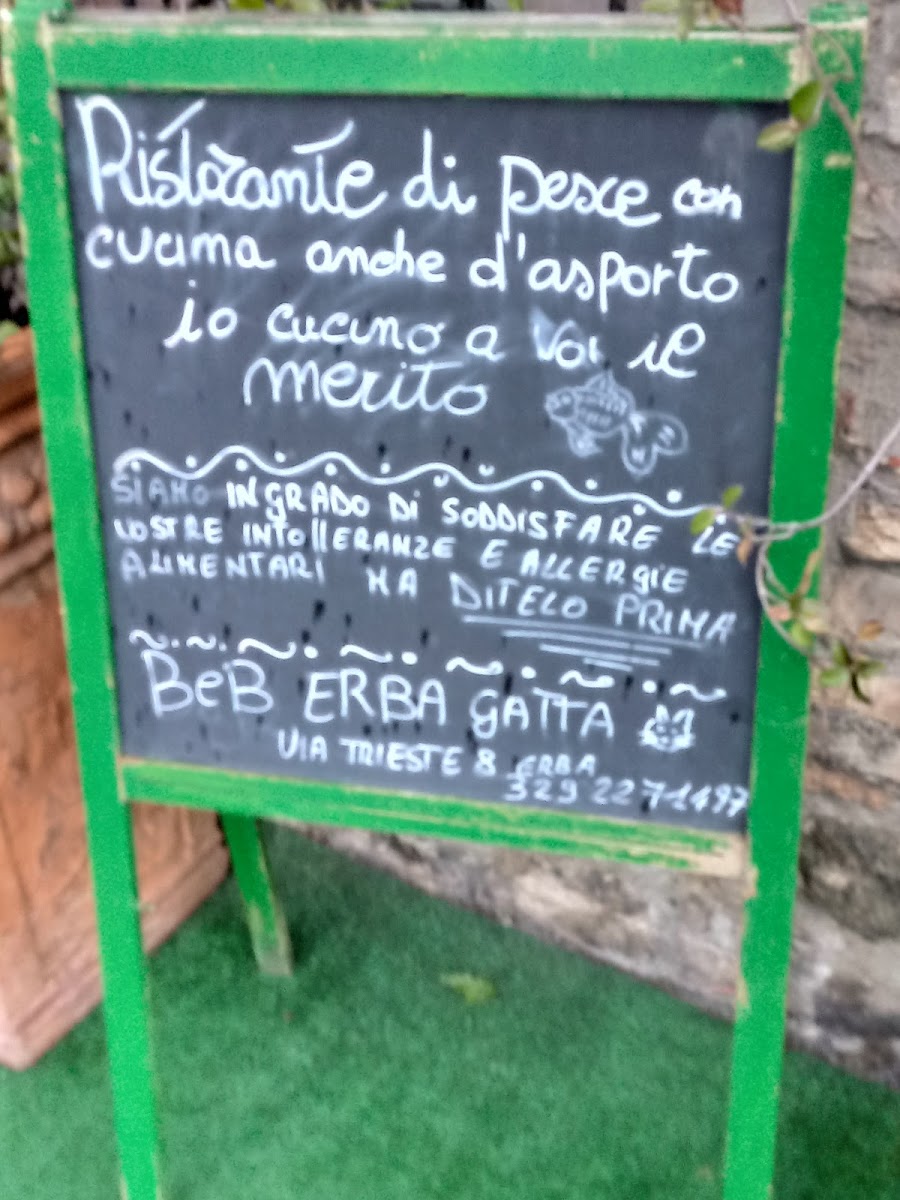 Ristorante di pesce con
cucina anche d'asporto
io cucino a Voi il
merito
SIAMO INGRADO DI SODDISFARE LE
VOSTRE INTOLLERANZE E ALLERGIE
ALIMENTARI MA DITELO PRIMA
BeB ERBA GATTA
VIA TRIESTE 8 ERBA
329 2271497